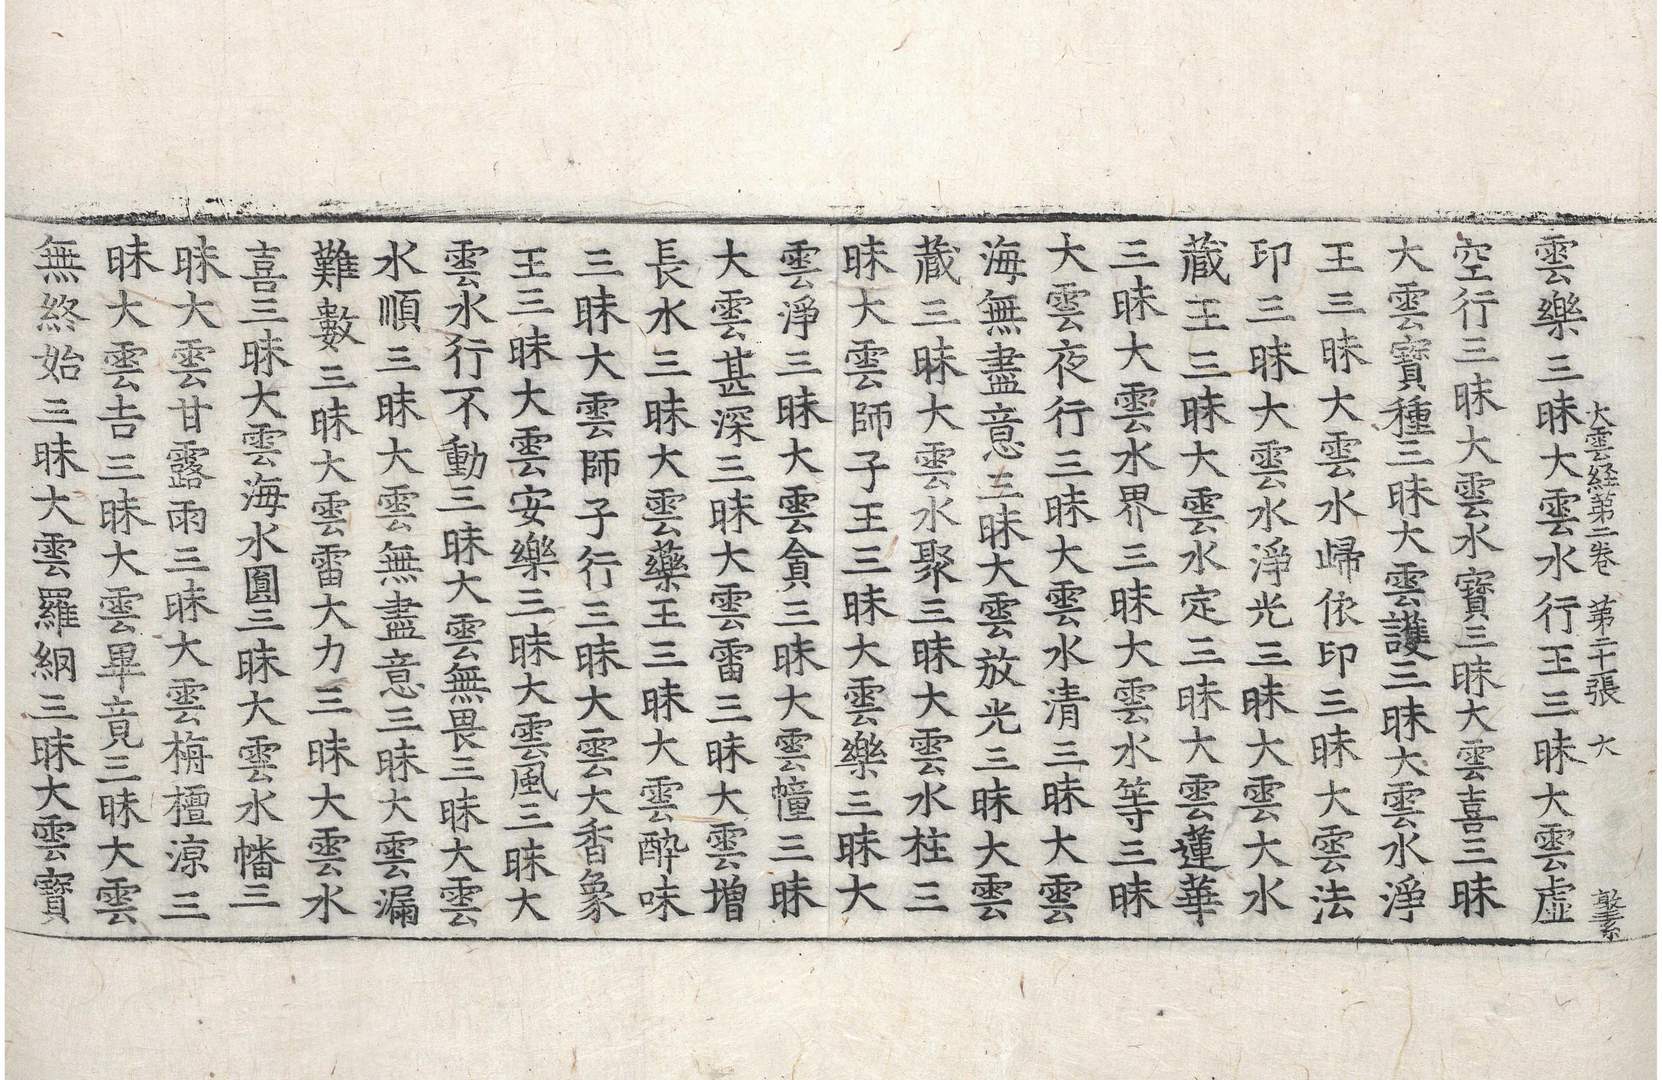 大雲経第二卷　第二十張　大
雲樂三昧大雲水行王三昧大雲虛
空行三昧大雲水寶三昧大雲喜三昧
大雲寶種三昧大雲護三昧大雲水淨
王三昧大雲水歸依印三昧大雲法
印三昧大雲水淨光三昧大雲大水
藏王三昧大雲水定三昧大雲蓮華
三昧大雲水界三昧大雲水等三昧
大雲夜行三昧大雲水清三昧大雲
海無盡意三昧大雲放光三昧大雲
藏三昧大雲水聚三昧大雲水柱三
昧大雲師子王三昧大雲樂三昧大
雲淨三昧大雲貪三昧大雲幢三昧
大雲甚深三昧大雲雷三昧大雲增
長水三昧大雲藥王三昧大雲醉味
三昧大雲師子行三昧大雲大香象
王三昧大雲安樂三昧大雲風三昧大
雲水行不動三昧大雲無畏三昧大雲
水順三昧大雲無盡意三昧大雲漏
難數三昧大雲雷大力三昧大雲水
喜三昧大雲海水圓三昧大雲水幡三
昧大雲甘露雨三昧大雲栴檀涼三
昧大雲吉三昧大雲畢竟三昧大雲
無終始三昧大雲羅網三昧大雲寶